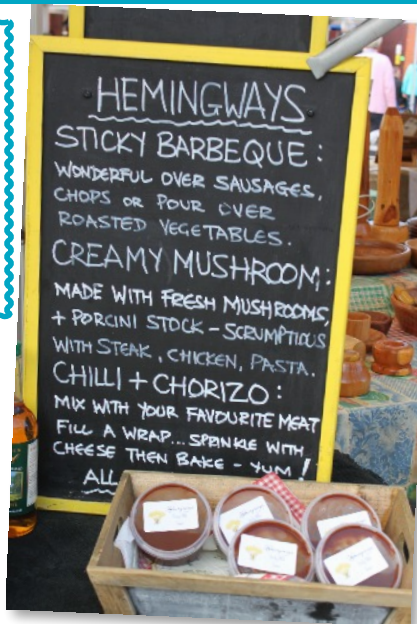 HEMINGWAYS
STICKY BARBEQUE:
WONDERFUL OVER SAUSAGES,
CHOPS OR POUR OVER
ROASTED VEGETABLES.
CREAMY MUSHROOM:
MADE WITH FRESH MUSHROOMS,
+ PORCINI STOCK - SCRUMPTIOUS
WITH STEAK, CHICKEN, PASTA.
CHILLI + CHORIZO:
MIX WITH YOUR FAVOURITE MEAT
FILL A WRAP... SPRINKLE WITH
CHEESE THEN BAKE - YUM!
ALL